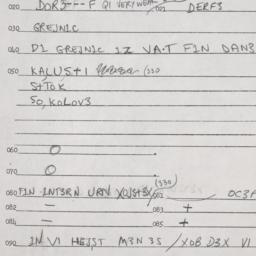 020 DOR3---F QI VERY WEAK 021 DERF3
030 GREJN1C
040 D1 GREJN1C 1Z VA-T F1N DAN3
050 KALUST1 (330
STTOK
SO, KOLOV3
060 O
070 O
(330)
080 F1N 1NT3RN URTV 081 OC3A
082 — 083 +
084 — 085 +
090 1N V1 HEJST M3N 35 / XOB D3X V1